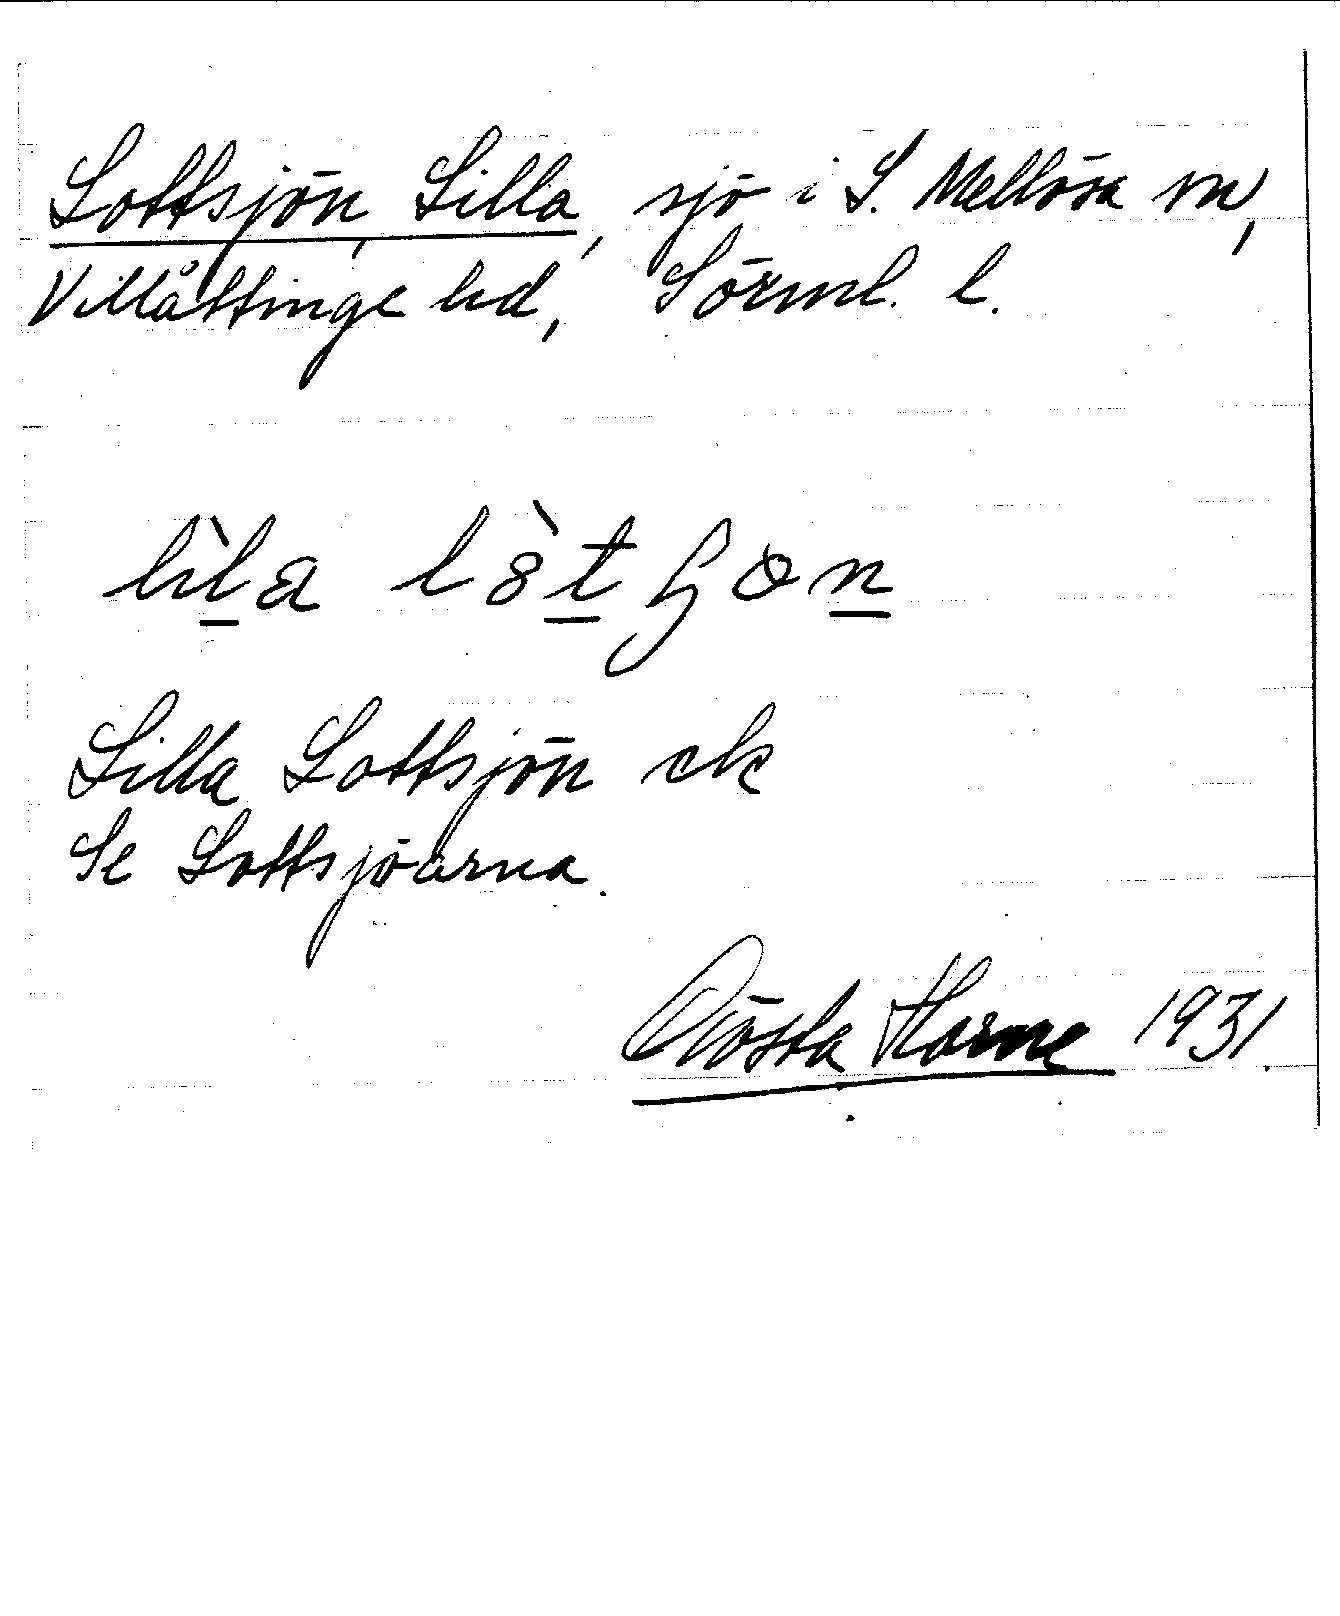 Lottsjön, Lilla, sjö i S. Mellösa sn,
Villåttinge hd, Sörml. l.
Lilla Lottsjön ek
Se Lottsjöarna.
Gösta Horne 1931.